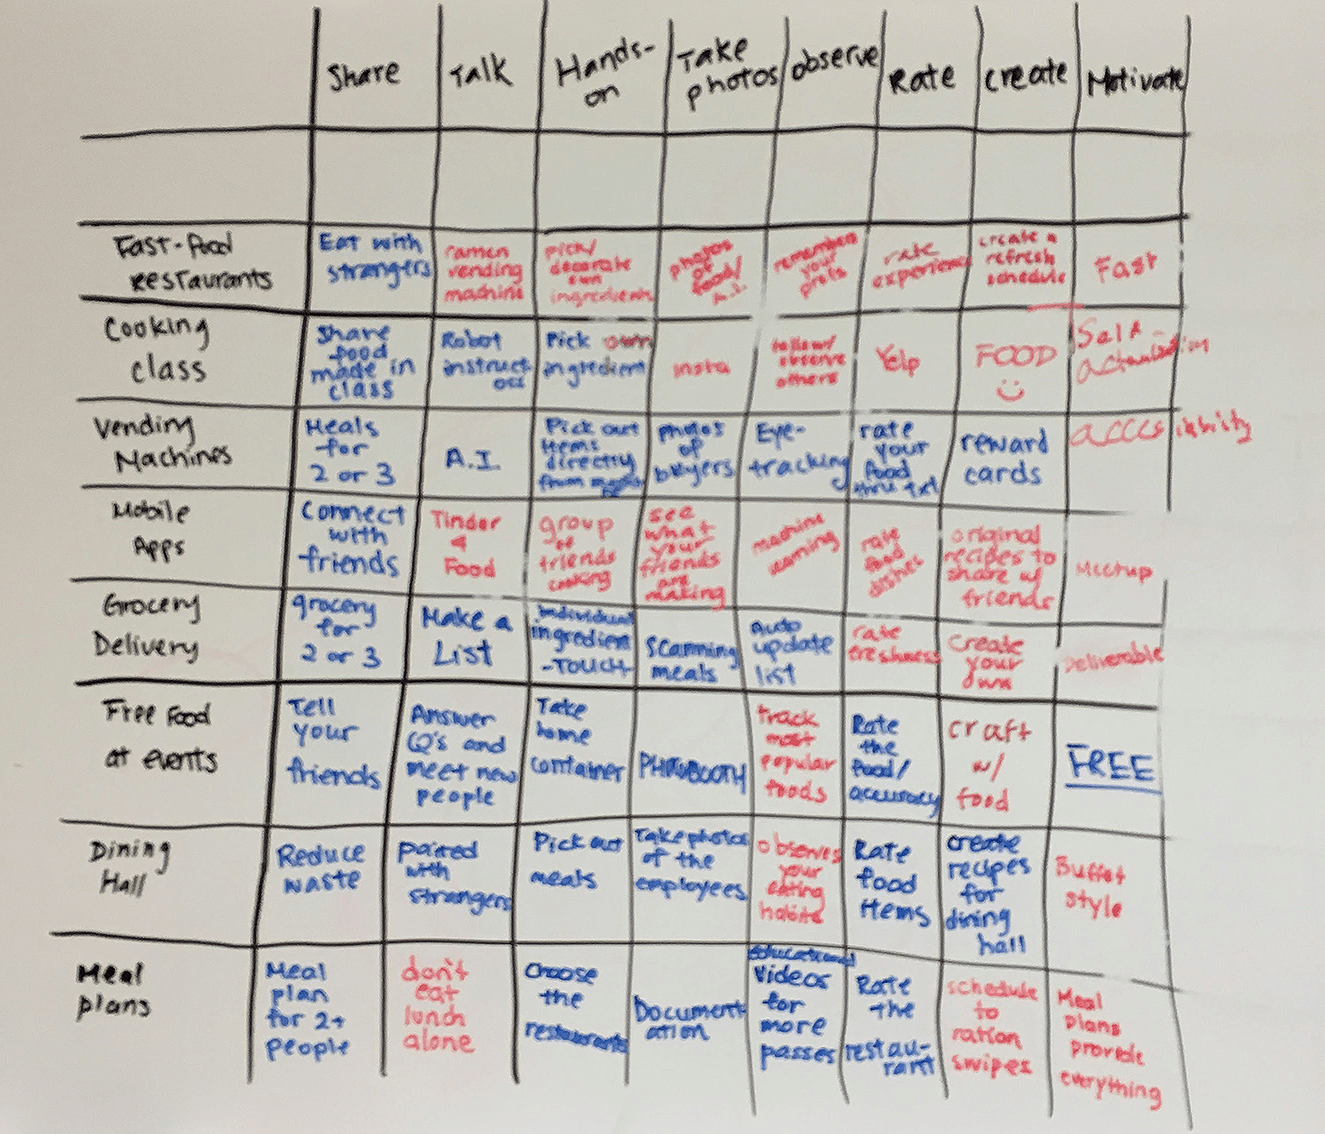 Share Talk Hands-on Take photos observe Rate create Motivate
Fast-food restaurants
Eat with strangers
ramen vending machine
pick/ decorate own ingredients
photos of food/ A.I.
remember your prefs
rate experience
create a refresh schedule
Fast
Cooking class
Share food made in class
Robot instructors
Pick own ingredient
insta
follow/ observe others
Yelp
FOOD
Self actualization
Vending Machines
Meals for 2 or 3
A.I.
Pick out items directly from
photos of buyers
Eye-tracking
rate your food thru txt
reward cards
accessibility
Mobile Apps
Connect with friends
Tinder 4 Food
group of friends cooking
see what your friends are making
machine learning
rate food dishes
original recipes to share w/ friends
Meetup
Grocery Delivery
grocery for 2 or 3
Make a List
individual ingredient -TOUCH
scanning meals
Auto update list
rate freshness
create your own
Deliverable
Free Food at events
Tell your friends
Answer Q's and meet new people
Take home container
PHOTOBOOTH
track most popular foods
Rate the food/ accuracy
craft w/ food
FREE
Dining Hall
Reduce waste
paired with strangers
Pick out meals
Take photos of the employees
observes your eating habits
Rate food items
create recipes for dining hall
Buffet style
Meal plans
Meal plan for 2+ people
don't eat lunch alone
Choose the restaurants
Documentation
educational videos for more passes
Rate the restau-rant
schedule to ration swipes
Meal plans provide everything